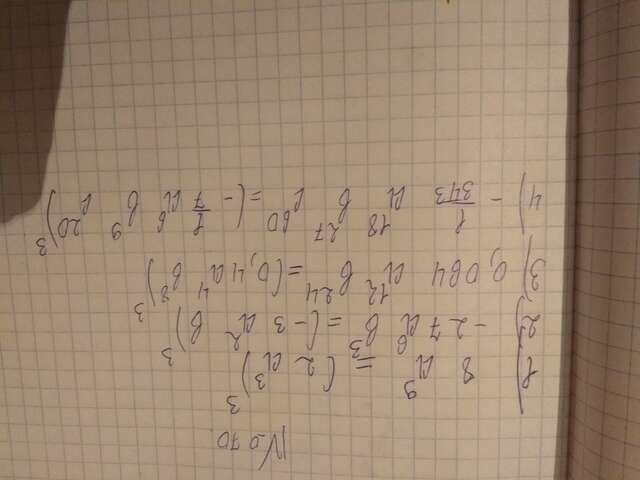 № 070
1) 8 a⁹ = (2 a³)³
2) - 27 a⁶ b³ = (- 3 a² b)³
3) 0,064 a¹² b²⁴ = (0,4 a⁴ b⁸)³
4) - 1/343 a¹⁸ b²⁷ c⁶⁰ = (- 1/7 a⁶ b⁹ c²⁰)³